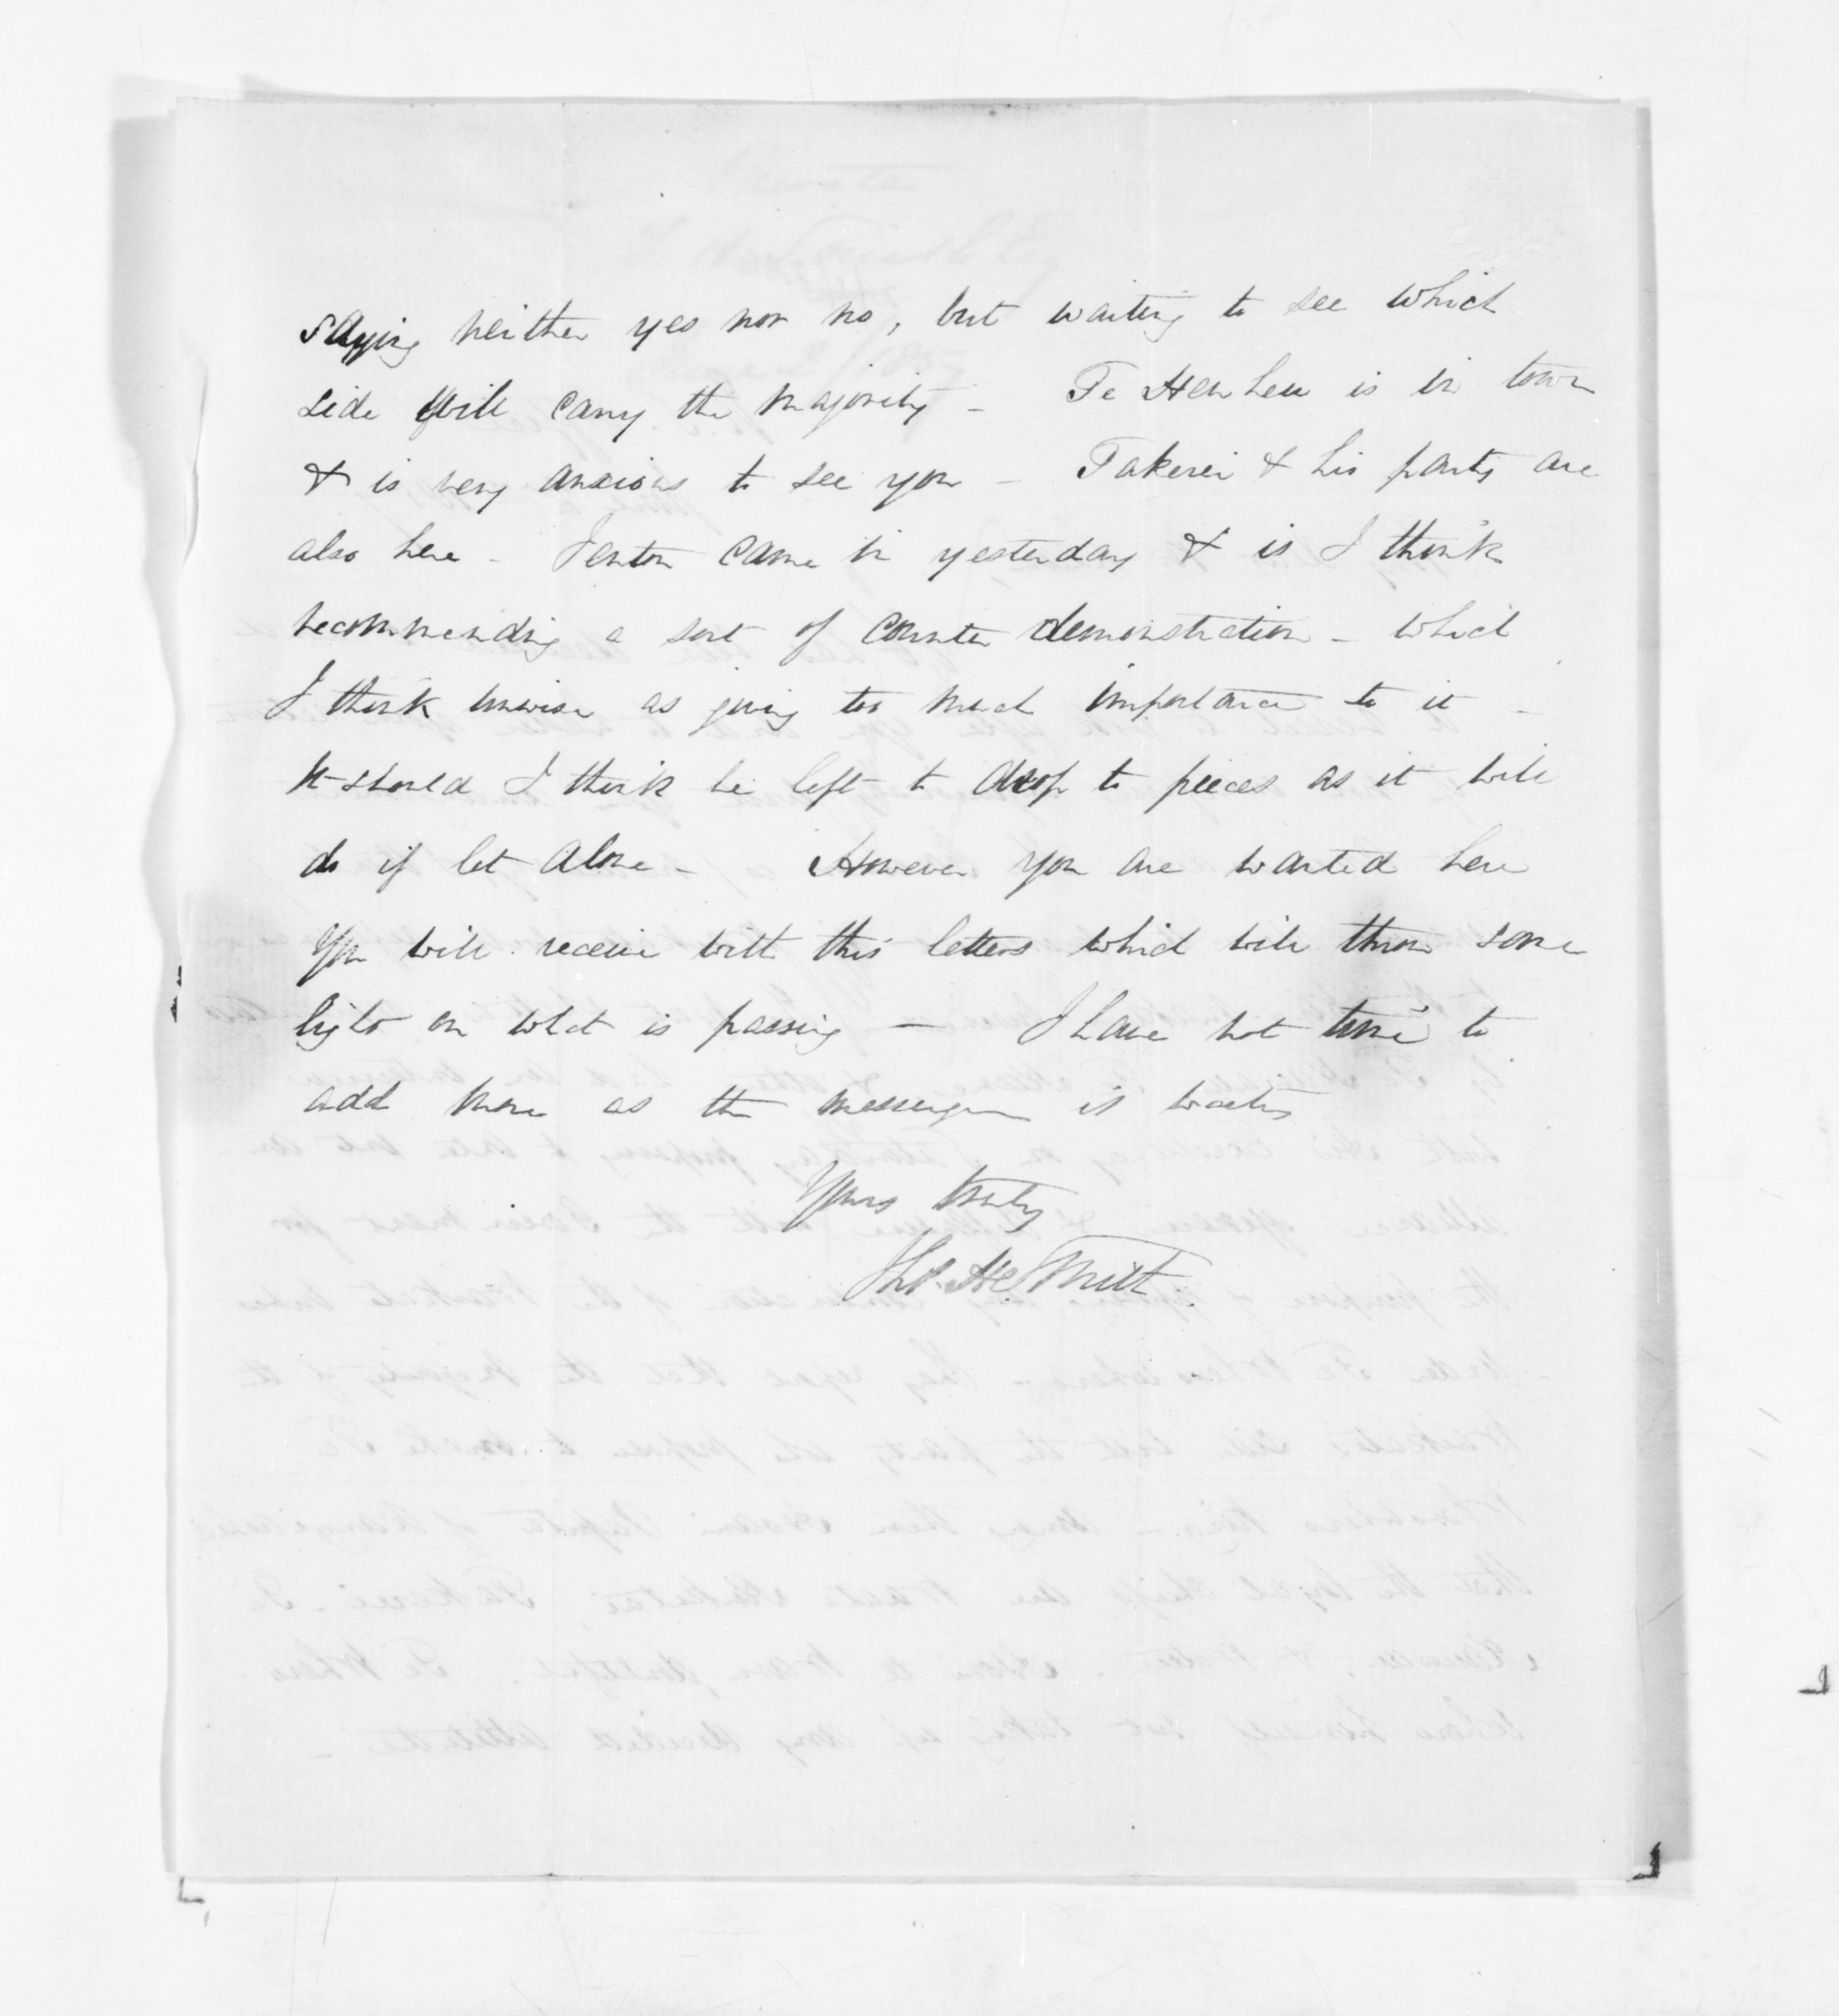 saying neither yes nor no, but waiting to see which
side will carry the majority -   Te Heu heu is in town
& is very anxious to see you - Takerei & his party are
also here - Fenton came in yesterday & is I think
recommending a sort of counter demonstration - which
I think unwise as giving too much importance to it -
It should I think be left to drop to pieces as it will
do if let alone -   However you are wanted here
You will receive with this letters which will throw some
light on what is passing - I have not time to
add more as the messenger is waiting
Yours truly
Thos. H. Smith.